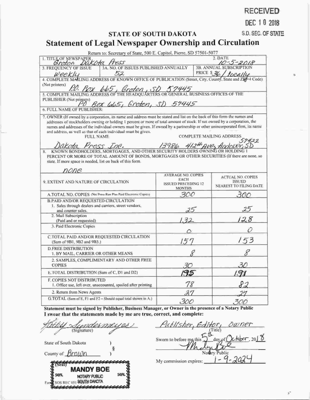 RECEIVED
DEC 10 2018
S.D. SEC. OF STATE
STATE OF SOUTH DAKOTA
Statement of Legal Newspaper Ownership and Circulation
Return to: Secretary of State, 500 E. Capitol, Pierre, SD 57501-5077
1. TITLE OF NEWSPAPER
Groton Dakota Press
2. DATE
10-5-2018
3. FREQUENCY OF ISSUE
weekly
3A. NO. OF ISSUES PUBLISHED ANNUALLY
52
3B. ANNUAL SUBSCRIPTION
PRICE $36/locally
4. COMPLETE MAILING ADDRESS OF KNOWN OFFICE OF PUBLICATION (Street, City, County, State and Zip + 4 Code)
(Not printers)
PO Box 665, Groton, SD 57445
5. COMPLETE MAILING ADDRESS OF THE HEADQUARTERS OR GENERAL BUSINESS OFFICES OF THE
PUBLISHER (Not printers)
PO Box 665, Groton, SD 57445
6. FULL NAME OF PUBLISHER:
7. OWNER (If owned by a corporation, its name and address must be stated and on the back of this form the names and
addresses of stockholders owning or holding 1 percent or more of total amount of stock. If not owned by a corporation, the
names and addresses of the individual owners must be given. If owned by a partnership or other unincorporated firm, its name
and address, as well as that of each individual must be given.
FULL NAME
COMPLETE MAILING ADDRESS
Dakota Press Inc.
Andover, SD
57422
8. KNOWN BONDHOLDERS, MORTGAGEES, AND OTHER SECURITY HOLDERS OWNING OR HOLDING 1
PERCENT OR MORE OF TOTAL AMOUNT OF BONDS, MORTGAGES OR OTHER SECURITIES (If there are none, so
state. If more space is needed, list on back of this form.
none
9. EXTENT AND NATURE OF CIRCULATION
AVERAGE NO. COPIES
EACH
ISSUED PRECEDING 12
MONTHS
ACTUAL NO. COPIES
ISSUED
NEAREST TO FILING DATE
A. TOTAL NO. COPIES (Net Press Run Plus Paid Electronic Copies)
300
300
B. PAID AND/OR REQUESTED CIRCULATION
1. Sales through dealers and carriers, street vendors,
and counter sales.
25
25
2. Mail Subscription
(Paid and or requested)
132
128
3. Paid Electronic Copies
0
0
C. TOTAL PAID AND/OR REQUESTED CIRCULATION
(Sum of 9B1, 9B2 and 9B3.)
157
153
D. FREE DISTRIBUTION
1. BY MAIL, CARRIER OR OTHER MEANS
8
8
2. SAMPLES, COMPLIMENTARY AND OTHER FREE
COPIES
30
30
E. TOTAL DISTRIBUTION (Sum of C, D1 and D2)
195
191
F. COPIES NOT DISTRIBUTED
1. Office use, left over, unaccounted, spoiled after printing
78
82
2. Return from News Agents
27
27
G. TOTAL (Sum of E, F1 and F2 - Should equal total shown in A.)
300
300
Statement must be signed by Publisher, Business Manager, or Owner in the presence of a Notary Public
I swear that the statements made by me are true, correct, and complete:
Publisher, Editor, Owner
(Signature)
(Title)
State of South Dakota )
Sworn to before me this 5th day of October, 2018
County of Brown )
Notary Public
My commission expires: 1-9-2024
MANDY BOE
NOTARY PUBLIC
SOUTH DAKOTA
SEAL
SEAL